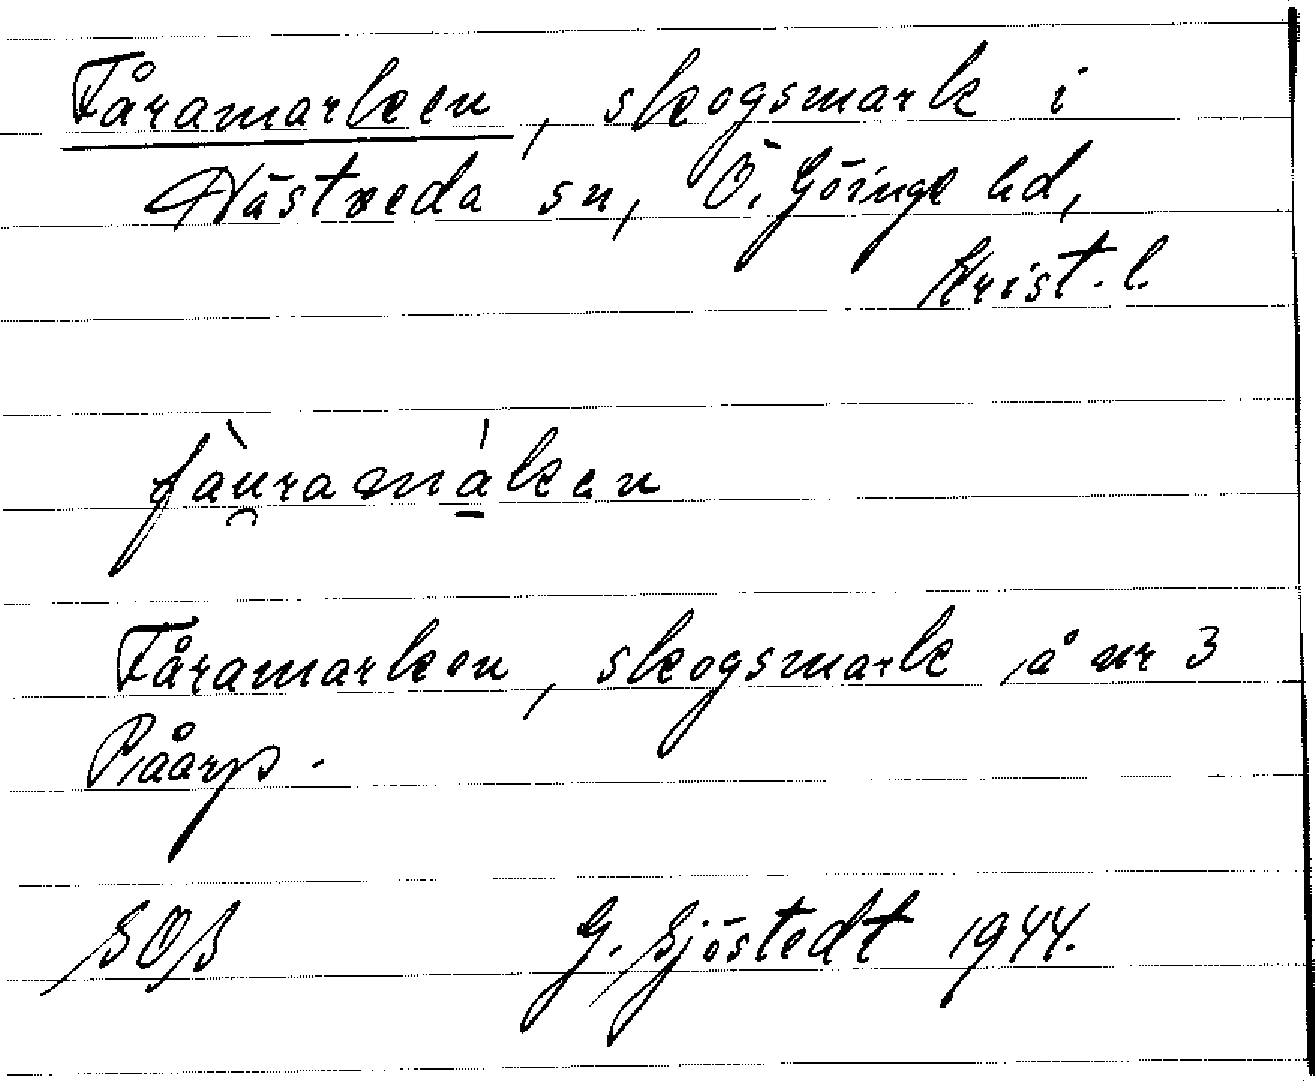 Fåramarken, skogsmark i
Hästveda sn, Ö. Göinge hd,
Krist. l.
Fåramarken, skogsmark å nr 3
Påarp.
SOS
G. Sjöstedt 1944.